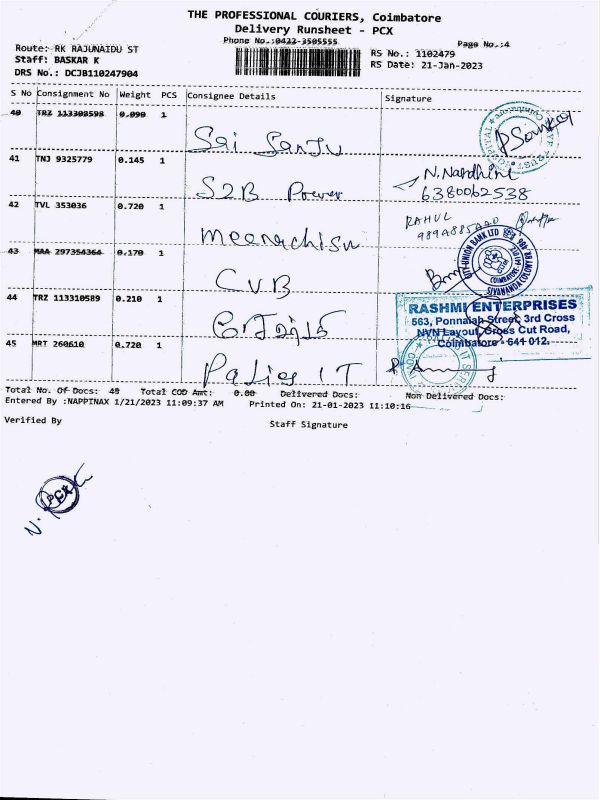 THE PROFESSIONAL COURIERS, Coimbatore
Delivery Runsheet - PCX
Phone No.:0422-3505555
Page No.:4
Route: RK RAJUNAIDU ST
RS No.: 1102479
Staff: BASKAR K
RS Date: 21-Jan-2023
DRS No.: DCJB110247904
S No Consignment No Weight PCS Consignee Details Signature
40 TRZ 113308598 0.090 1
Sai Sanju
41 TNJ 9325779 0.145 1
S2B Power
N. Nandhini
6380062538
42 TVL 353036 0.720 1
RAHUL
Meenachisu
43 MAA 297354364 0.170 1
CITY UNION BANK LTD
CUB
44 TRZ 113310589 0.210 1
RASHMI ENTERPRISES
563, Ponnaiah Street, 3rd Cross
NVN Layout, Cross Cut Road,
Coimbatore - 641 012.
45 MRT 260610 0.720 1
IT
Total No. Of Docs: 45 Total COD Amt: 0.00 Delivered Docs: Non Delivered Docs:
Entered By :NAPPINAX 1/21/2023 11:09:37 AM Printed On: 21-01-2023 11:10:16
Verified By
Staff Signature